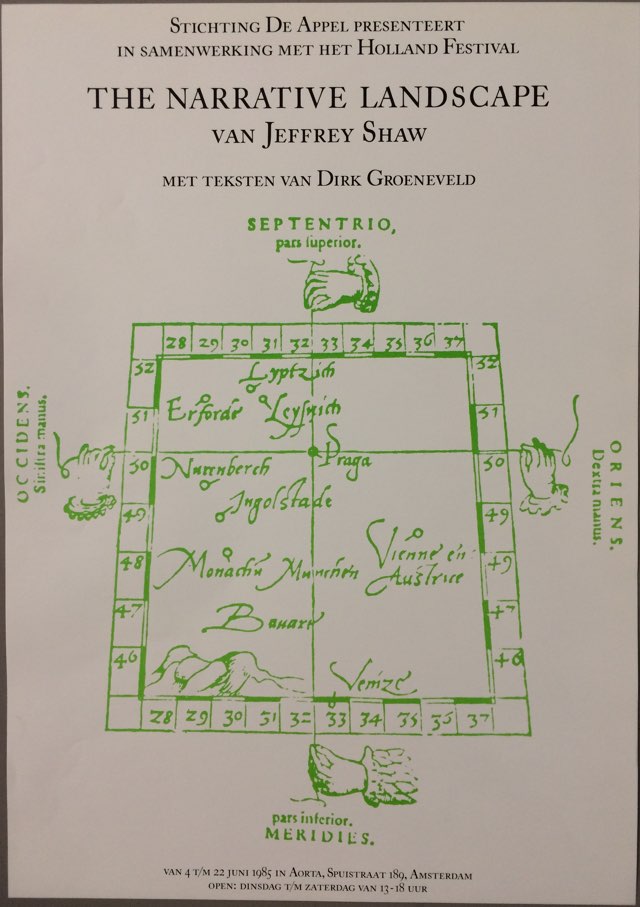 STICHTING DE APPEL PRESENTEERT
IN SAMENWERKING MET HET HOLLAND FESTIVAL
THE NARRATIVE LANDSCAPE
VAN JEFFREY SHAW
MET TEKSTEN VAN DIRK GROENEVELD
SEPTENTRIO,
pars superior.
28 29 30 31 32 33 34 35 36 37
52 Lyptzich 52
51 Erforde Leysnich 51
OCCIDENS.
Sinistra manus.
50 Nurenberch Praga 50
ORIENS.
Dextra manus.
49 Ingolstade 49
48 Monachu Munchen Vienne en Austrice 49
47 Bavare 47
46 Venize 46
28 29 30 31 32 33 34 35 36 37
pars inferior.
MERIDIES.
VAN 4 T/M 22 JUNI 1985 IN AORTA, SPUISTRAAT 189, AMSTERDAM
OPEN: DINSDAG T/M ZATERDAG VAN 13-18 UUR